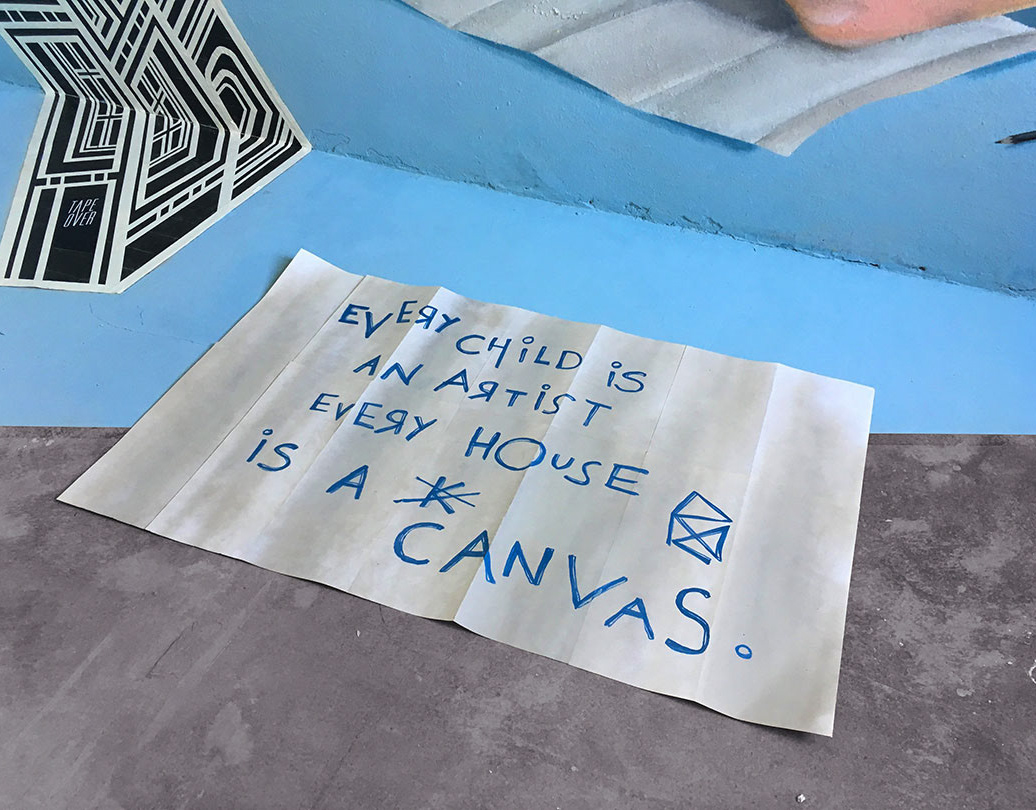 TAPE
OVER
EVERY CHILD IS
AN ARTIST
EVERY HOUSE
IS A
CANVAS.